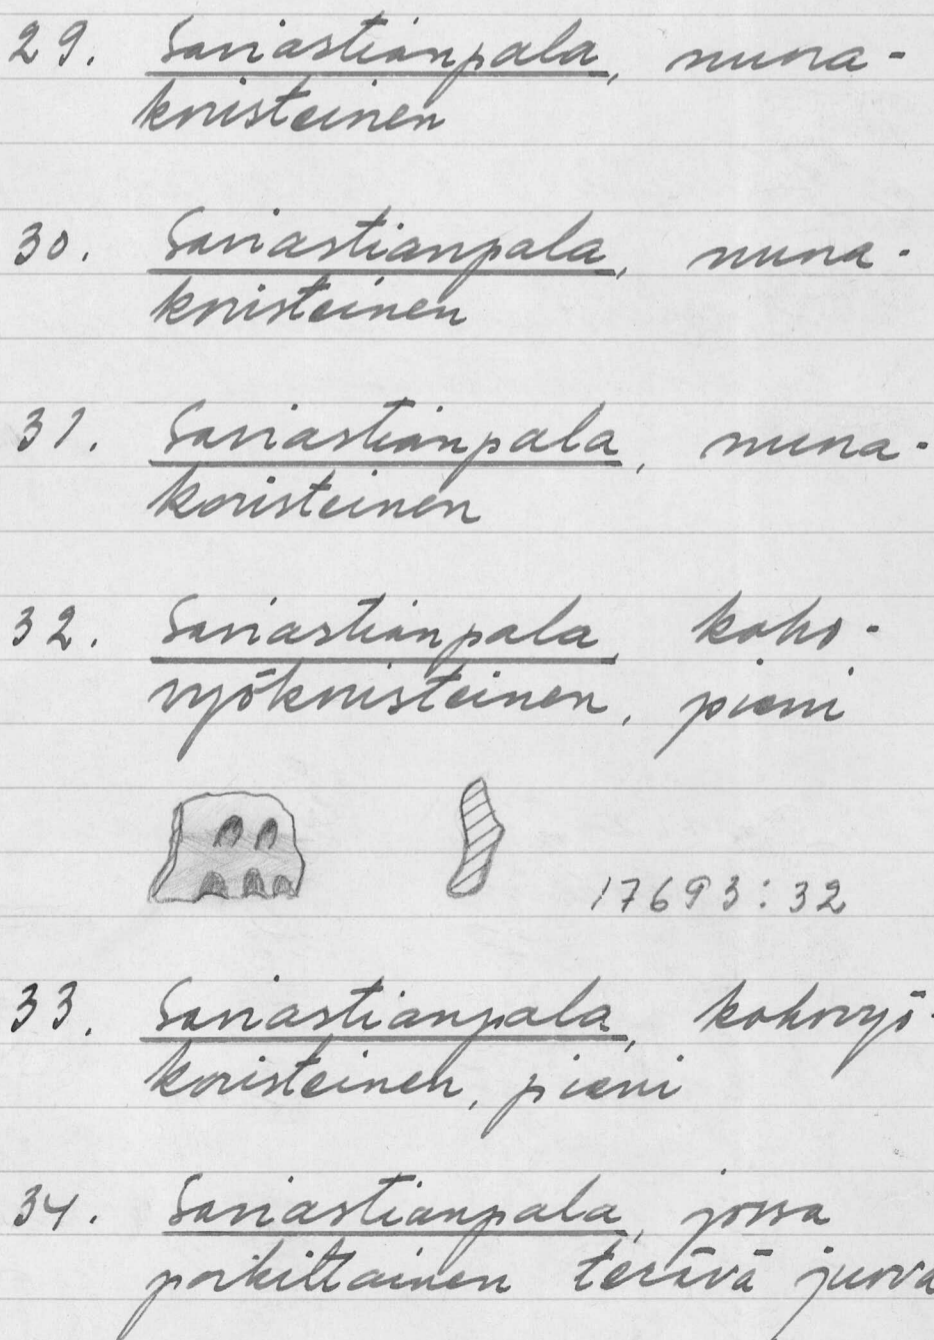 29. Saviastianpala, nuora-
koristeinen
30. Saviastianpala, nuora-
koristeinen
31. Saviastianpala, nuora-
koristeinen
32. Saviastianpala, koho-
vyökoristeinen, pieni
17693:32
33. Saviastianpala, kohovyö-
koristeinen, pieni
34. Saviastianpala, jossa
poikittainen terävä juova